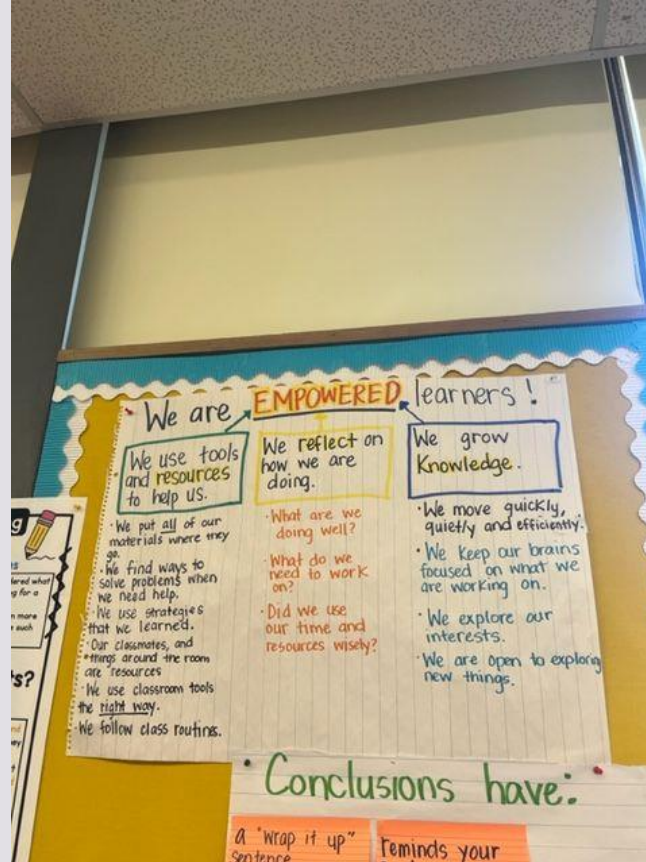 We are EMPOWERED learners!
We use tools
and resources
to help us.
· We put all of our
materials where they
go.
· We find ways to
solve problems when
we need help.
· We use strategies
that we learned.
· Our classmates, and
things around the room
are resources
· We use classroom tools
the right way.
· We follow class routines.
We reflect on
how we are
doing.
· What are we
doing well?
· What do we
need to work
on?
· Did we use
our time and
resources wisely?
We grow
Knowledge.
· We move quickly,
quietly and efficiently.
· We keep our brains
focused on what we
are working on.
· We explore our
interests.
· We are open to exploring
new things.
Conclusions have:
a "wrap it up"
sentence
reminds your
g for a
more
such